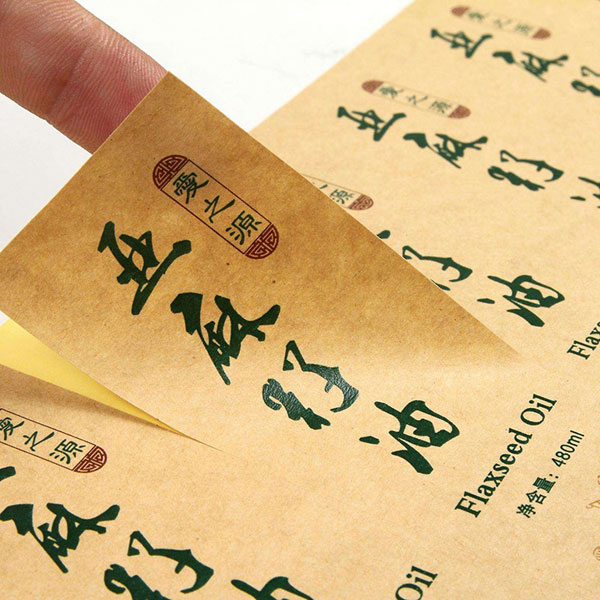 愛之源
亚麻籽油
愛之源
亚麻籽油
籽油
愛之源
亚麻籽油
Flaxseed Oil
净含量：480ml
Flaxs
愛之源
麻籽油
Oil